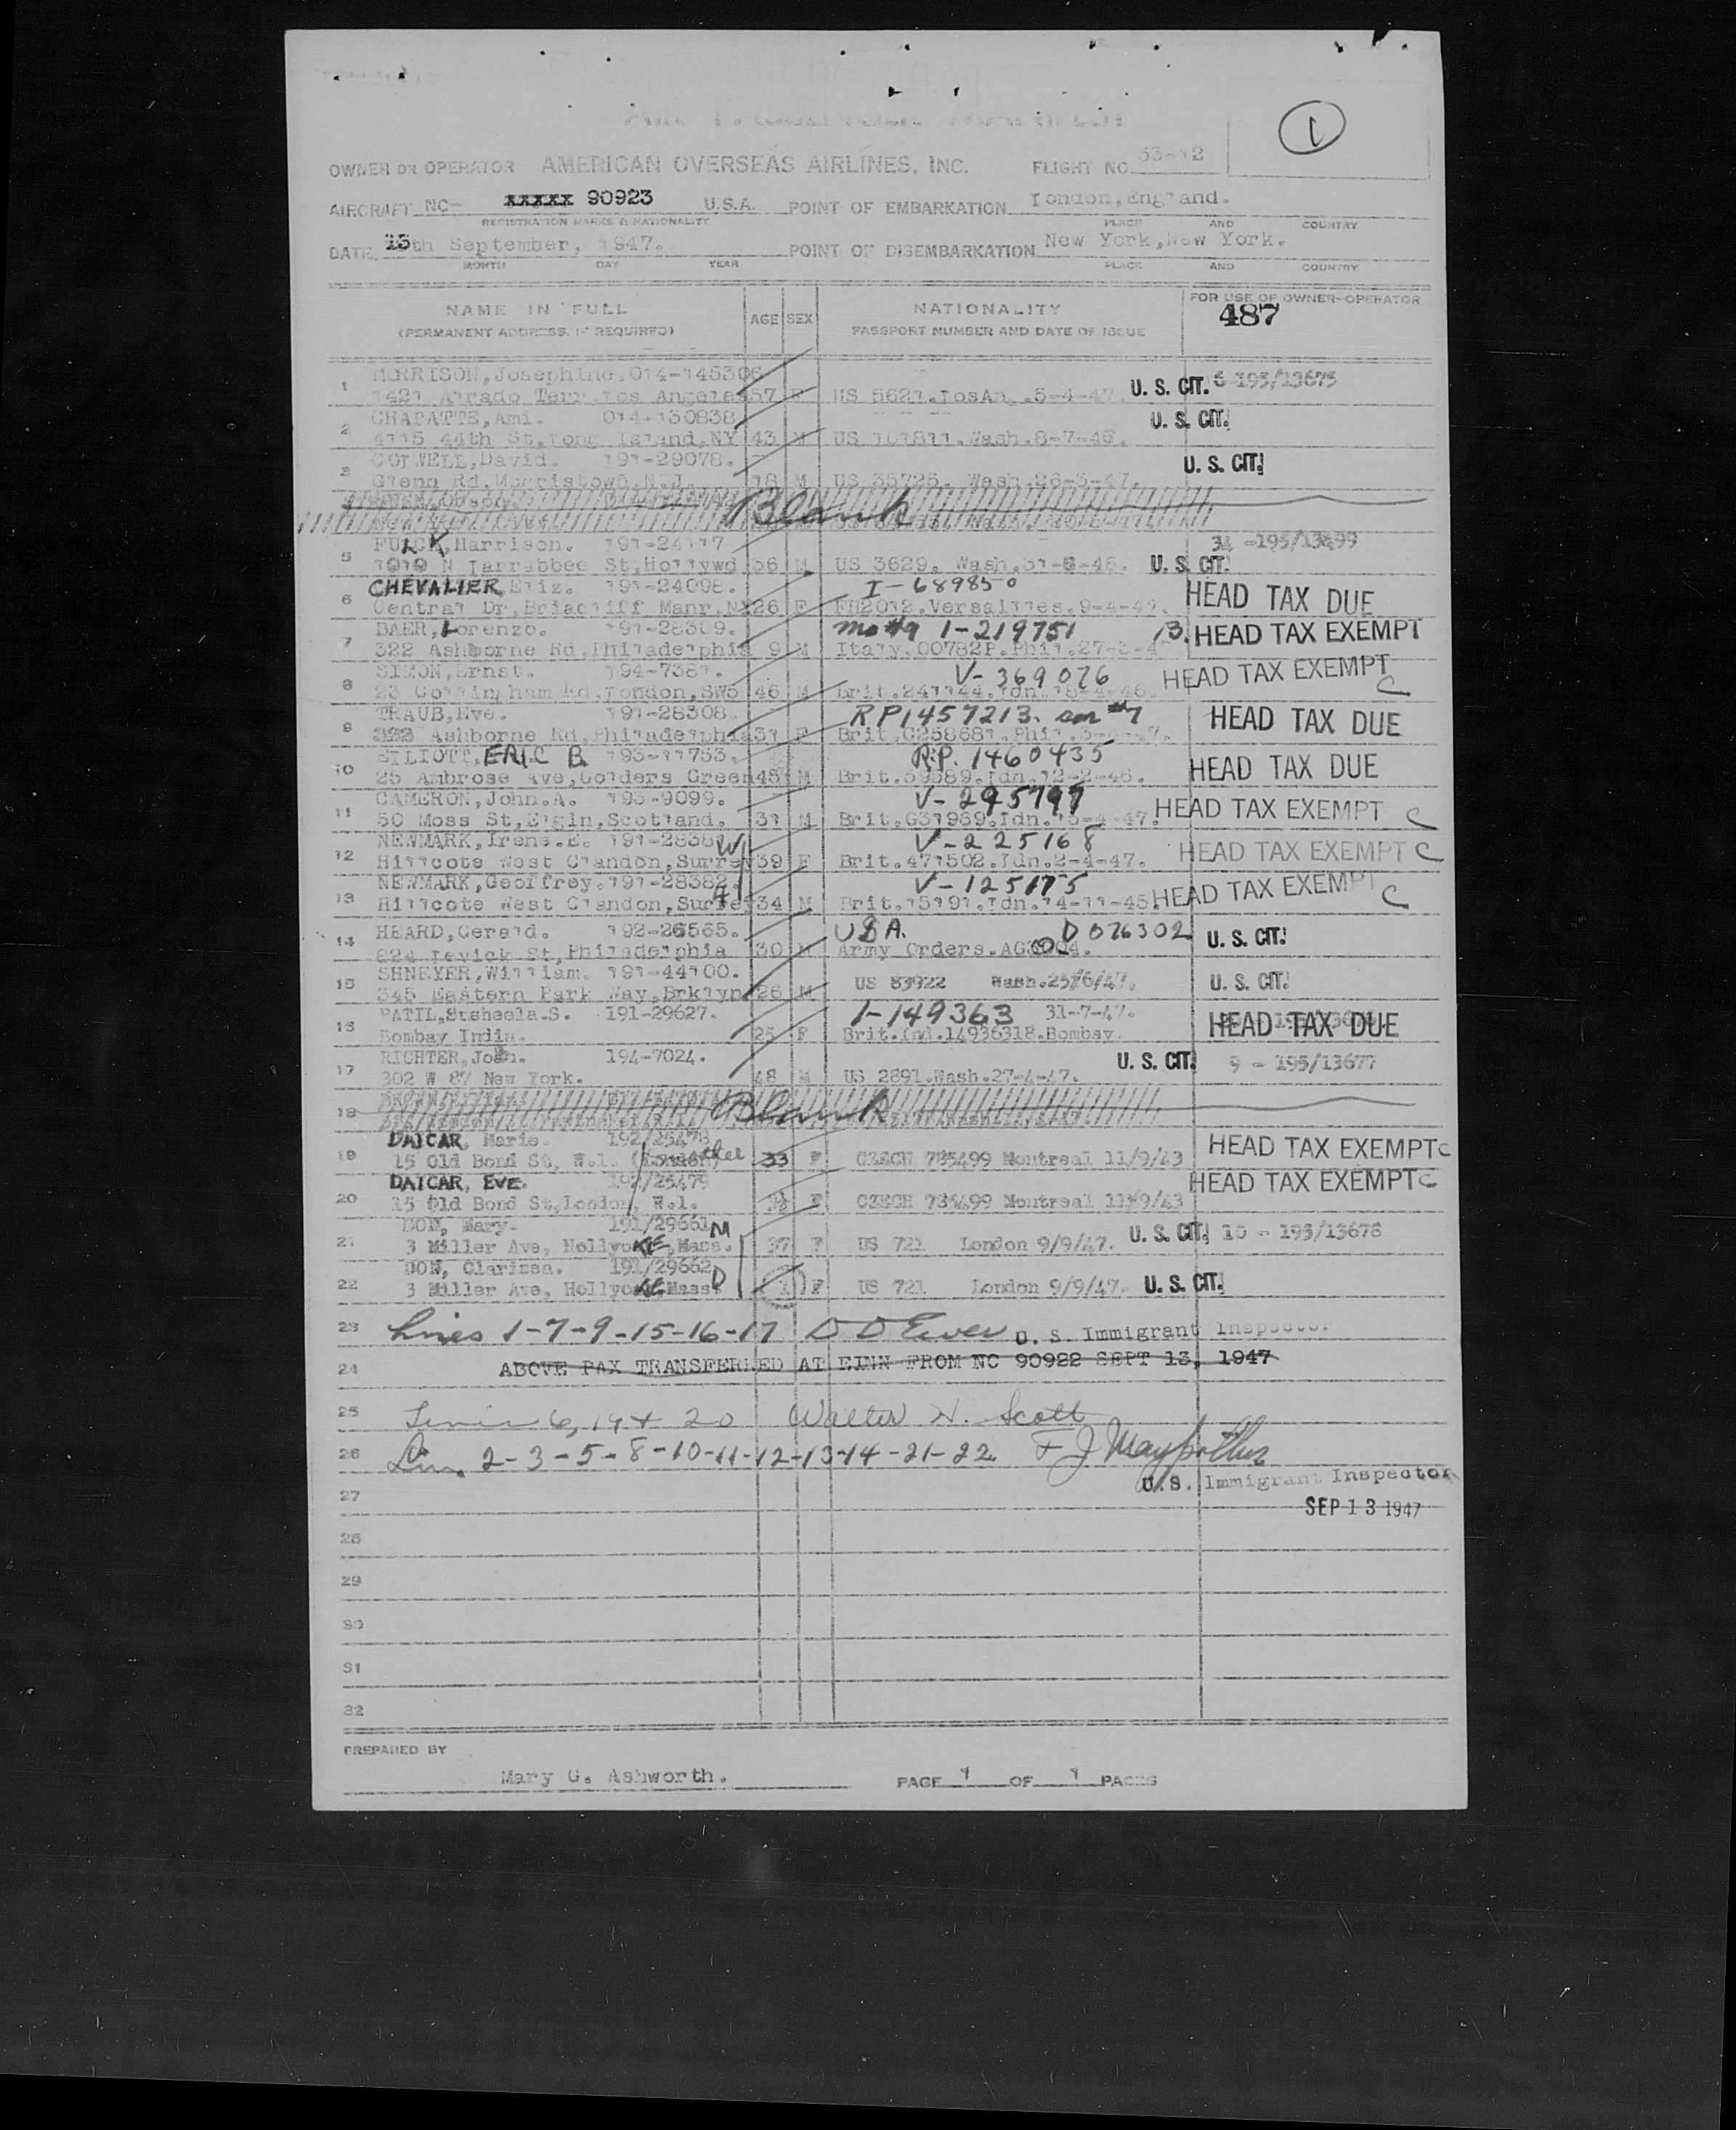 1
OWNER OR OPERATOR AMERICAN OVERSEAS AIRLINES, INC. FLIGHT NO 53-12
AIRCRAFT NC- XXXXX 90923 U.S.A. POINT OF EMBARKATION London, England.
REGISTRATION MARKS & NATIONALITY PLACE AND COUNTRY
DATE 13th September, 1947. POINT OF DISEMBARKATION New York, New York.
MONTH DAY YEAR PLACE AND COUNTRY
NAME IN FULL AGE SEX NATIONALITY FOR USE OF OWNER-OPERATOR
(PERMANENT ADDRESS, IF REQUIRED) PASSPORT NUMBER AND DATE OF ISSUE 487
1 MORRISON, Josephine. 014-145306
Terr, Los Angeles 57 F US 5621. Los An. 5-4-47. U. S. CIT. 6-195/13675
2 CHAPATTE, Ami. 014-130838 U. S. CIT.
4115 44th St, Long Island, NY 43 M US 101811. Wash.
3 COLWELL, David. 191-29078. U. S. CIT.
Glenn Rd, Morristown, N.J. 18 M US 35725. Wash. 26-3-47.
4 Blank
5 FULCK, Harrison. 191-24117 34 -195/13499
1019 N Larrabbee St, Hollywd 56 M US 3629. Wash. U. S. CIT.
6 CHEVALIER, Eliz. 191-24098. I-689850 HEAD TAX DUE
Central Dr, Briarcliff Manr. NY 26 F FH2012. Versailles. 9-4-47.
7 BAER, Lorenzo. 191-28309. mo #9 1-219751 B. HEAD TAX EXEMPT
322 Ashborne Rd, Philadelphia 9 M Italy. 00782P. Phil. 27-3-47
8 SIMON, Ernst. 194-7381. V-369076 HEAD TAX EXEMPT C
23 Collingham Rd, London, SW5 46 M Brit. 241144. Ldn. 18-4-46.
9 TRAUB, Eve. 191-28308. RP1457213. son #7 HEAD TAX DUE
322 Ashborne Rd, Philadelphia 31 F Brit. C258681. Phil.
10 ELLIOTT, ERIC B. 193-11753. R.P. 1460435 HEAD TAX DUE
25 Ambrose Ave, Golders Green 45 M Brit. 59589. Ldn. 12-2-46.
11 CAMERON, John.A. 193-9099. V-295797 HEAD TAX EXEMPT C
50 Moss St, Elgin, Scotland. 31 M Brit. G31969. Ldn.
12 NEWMARK, Irene.E. 191-28381 W V-225168 HEAD TAX EXEMPT C
Hillcote West Clandon, Surrey 39 F Brit. 471502. Ldn. 2-4-47.
13 NEWMARK, Geoffrey. 191-28382. H V-125175 HEAD TAX EXEMPT C
Hillcote West Clandon, Surrey 34 M Brit. 15191. Ldn. 14-11-45.
14 HEARD, Gerald. 192-26565. USA. D 076302 U. S. CIT.
824 Levick St, Philadelphia 30 M Army Orders.
15 SHNEYER, William. 191-44100. US 83922 Wash. 25/6/47. U. S. CIT.
345 Eastern Park Way, Brklyn 26 M
16 PATIL, Susheela.S. 191-29627. 1-149363 31-7-47. HEAD TAX DUE
Bombay India. 25 F Brit. Ind. 14936318. Bombay.
17 RICHTER, John. 194-7024. U. S. CIT. 9 - 195/13677
302 W 87 New York. 48 M US 2891. Wash. 27-4-47.
18 Blank
19 DAICAR, Marie. 192/25478 HEAD TAX EXEMPT C
15 Old Bond St, W.1. (London) mother 33 F CZECH 785499 Montreal 11/9/43
20 DAICAR, EVE. 192/25479 HEAD TAX EXEMPT C
15 Old Bond St, London, W.1. F CZECH 785499 Montreal 11/9/43
21 DON, Mary. 191/29661 M U. S. CIT. 10 - 195/13678
3 Miller Ave, Hollyoke, Mass. 37 F US 721 London 9/9/47.
22 DON, Clarissa. 191/29662 D
3 Miller Ave, Hollyoke, Mass. 1 F US 721 London 9/9/47. U. S. CIT.
23 Lines 1-7-9-15-16-17 U. S. Immigrant Inspector
24 ABOVE PAX TRANSFERRED AT EINN FROM NC 90922 SEPT 13, 1947
25 Lines 6, 19 + 20 Walter H. Scott
26 Lin. 2-3-5-8-10-11-12-13-14-21-22
27 U.S. Immigrant Inspector
SEP 13 1947
28
29
30
31
32
PREPARED BY
Mary G. Ashworth. PAGE 1 OF 1 PAGES